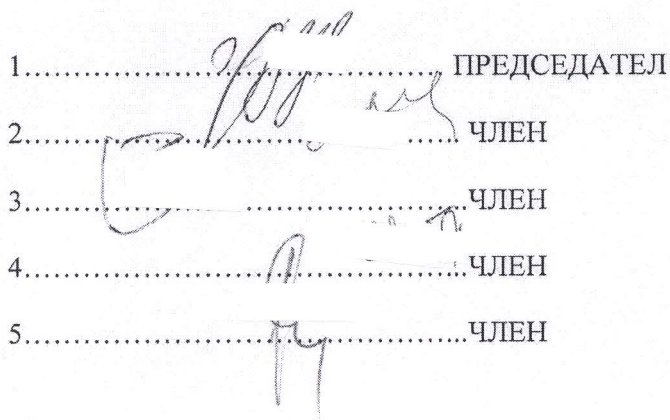 1................................................ ПРЕДСЕДАТЕЛ
2.................................................... ЧЛЕН
3....................................................ЧЛЕН
4....................................................ЧЛЕН
5....................................................ЧЛЕН